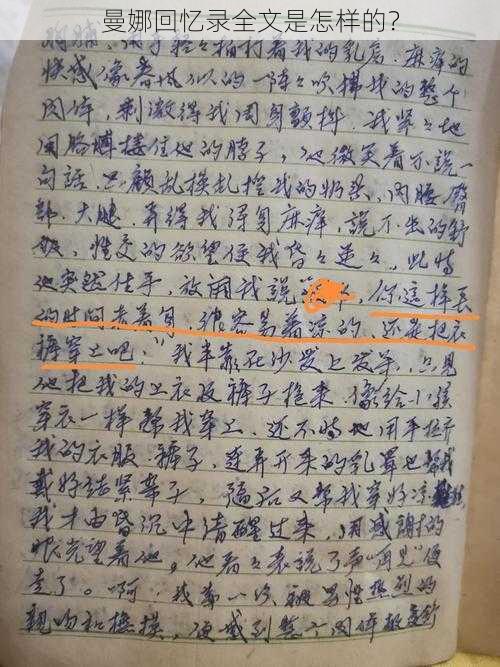 曼娜回忆录全文是怎样的？
胸脯，用手轻々拍打着我的乳房．麻痒的
快感像春风似的一阵々吹拂我的整个
肉体，刺激得我周身颤抖．我紧々地
用胳膊搂住他的脖子，他微笑着不说一
句話．只顾乱摸乱捏我的奶头，肉腰臀
部．大腿．弄得我浑身麻痒，説不出的舒
服．性交的欲望使我昏々迷々。此時
他突然住手．放開我説 你這样長
的时间赤着身．很容易着凉的．还是把衣
裤穿上吧．" 我半靠在沙发上发呆，只見
他把我的上衣及裤子拖来．像给小孩
穿衣一样帮我穿上．还不時地用手拉齐
我的衣服 裤子，連弄开来的乳罩也帮我
戴好结紧带子，随后又帮我穿好凉鞋
我才由昏沉中清醒过来，用感謝的
眼光望着他。他看々表説了声"再見"便
走了。啊，我第一次被男性热烈的
親吻和撫摸，便感到整个肉体